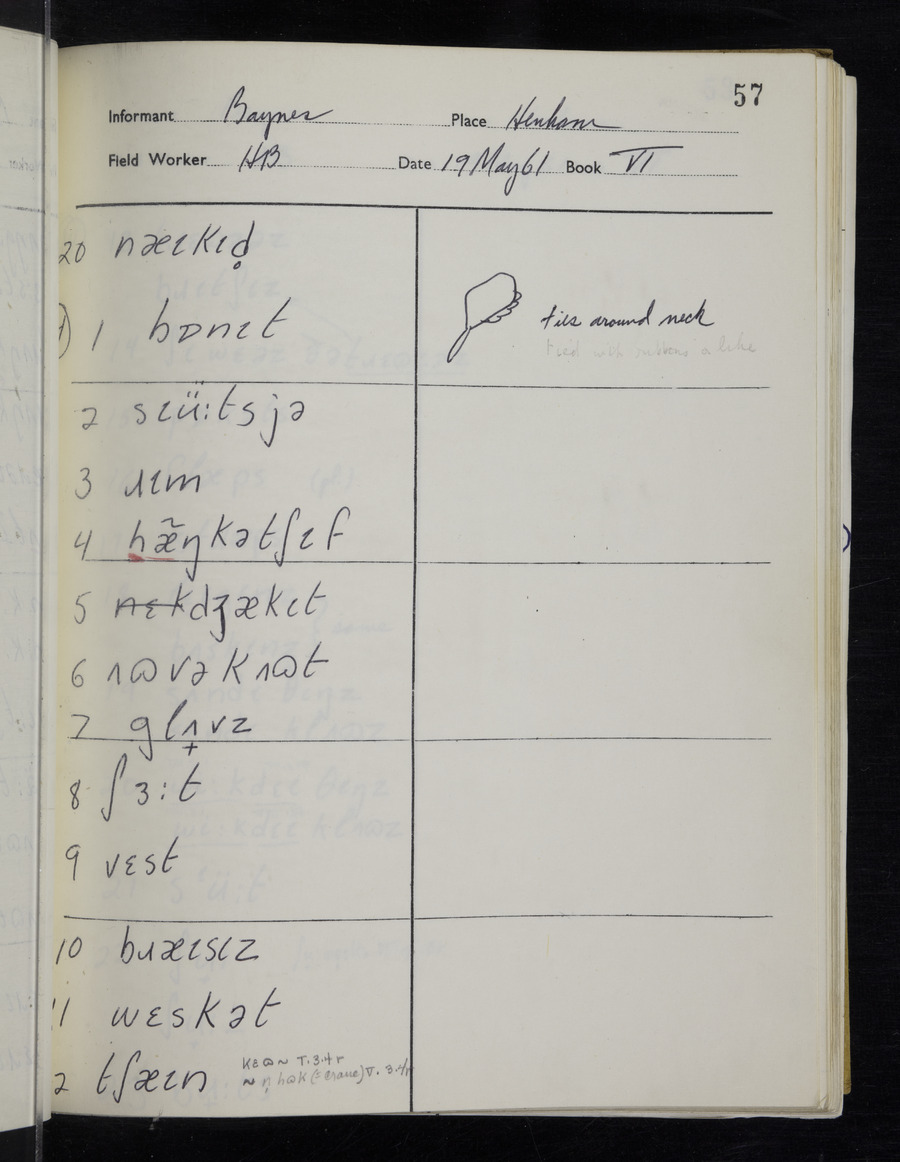 57
Informant Baynes Place Henham
Field Worker HB Date 19 May 61 Book VI
20 næɪkɪd̥
1 bɒnɪt
ties around neck
tied with ribbons a like
2 sɪü:tsjə
3 ɹɪm
4 hæ̃ŋkətʃɪf
5 nɛk dʒæket
6 ʌɷvəkʌɷt
7 glʌ̟vz
8 ʃɜ:t
9 vɛst
10 bɹæɪsɪz
11 wɛskət
2 tʃæɪn
kɛɷ~ T.3.4r
~ hɷk (= crane) V. 3.4r